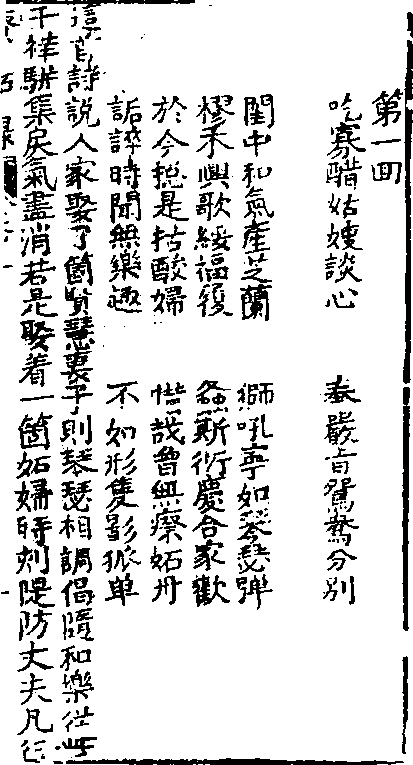 第一回
吃寡醋姑嫂談心　奉嚴旨鴛鴦分別
閨中和氣產芝蘭　獅吼寧如琴瑟彈
樛木興歌綏福履　螽斯衍慶合家歡
於今總是拈酸婦　惜哉曾無療妬丹
詬誶時聞無樂趣　不如形隻影孤單
這首詩說人家娶了箇賢慧妻子則琴瑟相調倡隨和樂從此
千祥駢集戾氣盡消若是娶着一箇妬婦時刻隄防丈夫凡